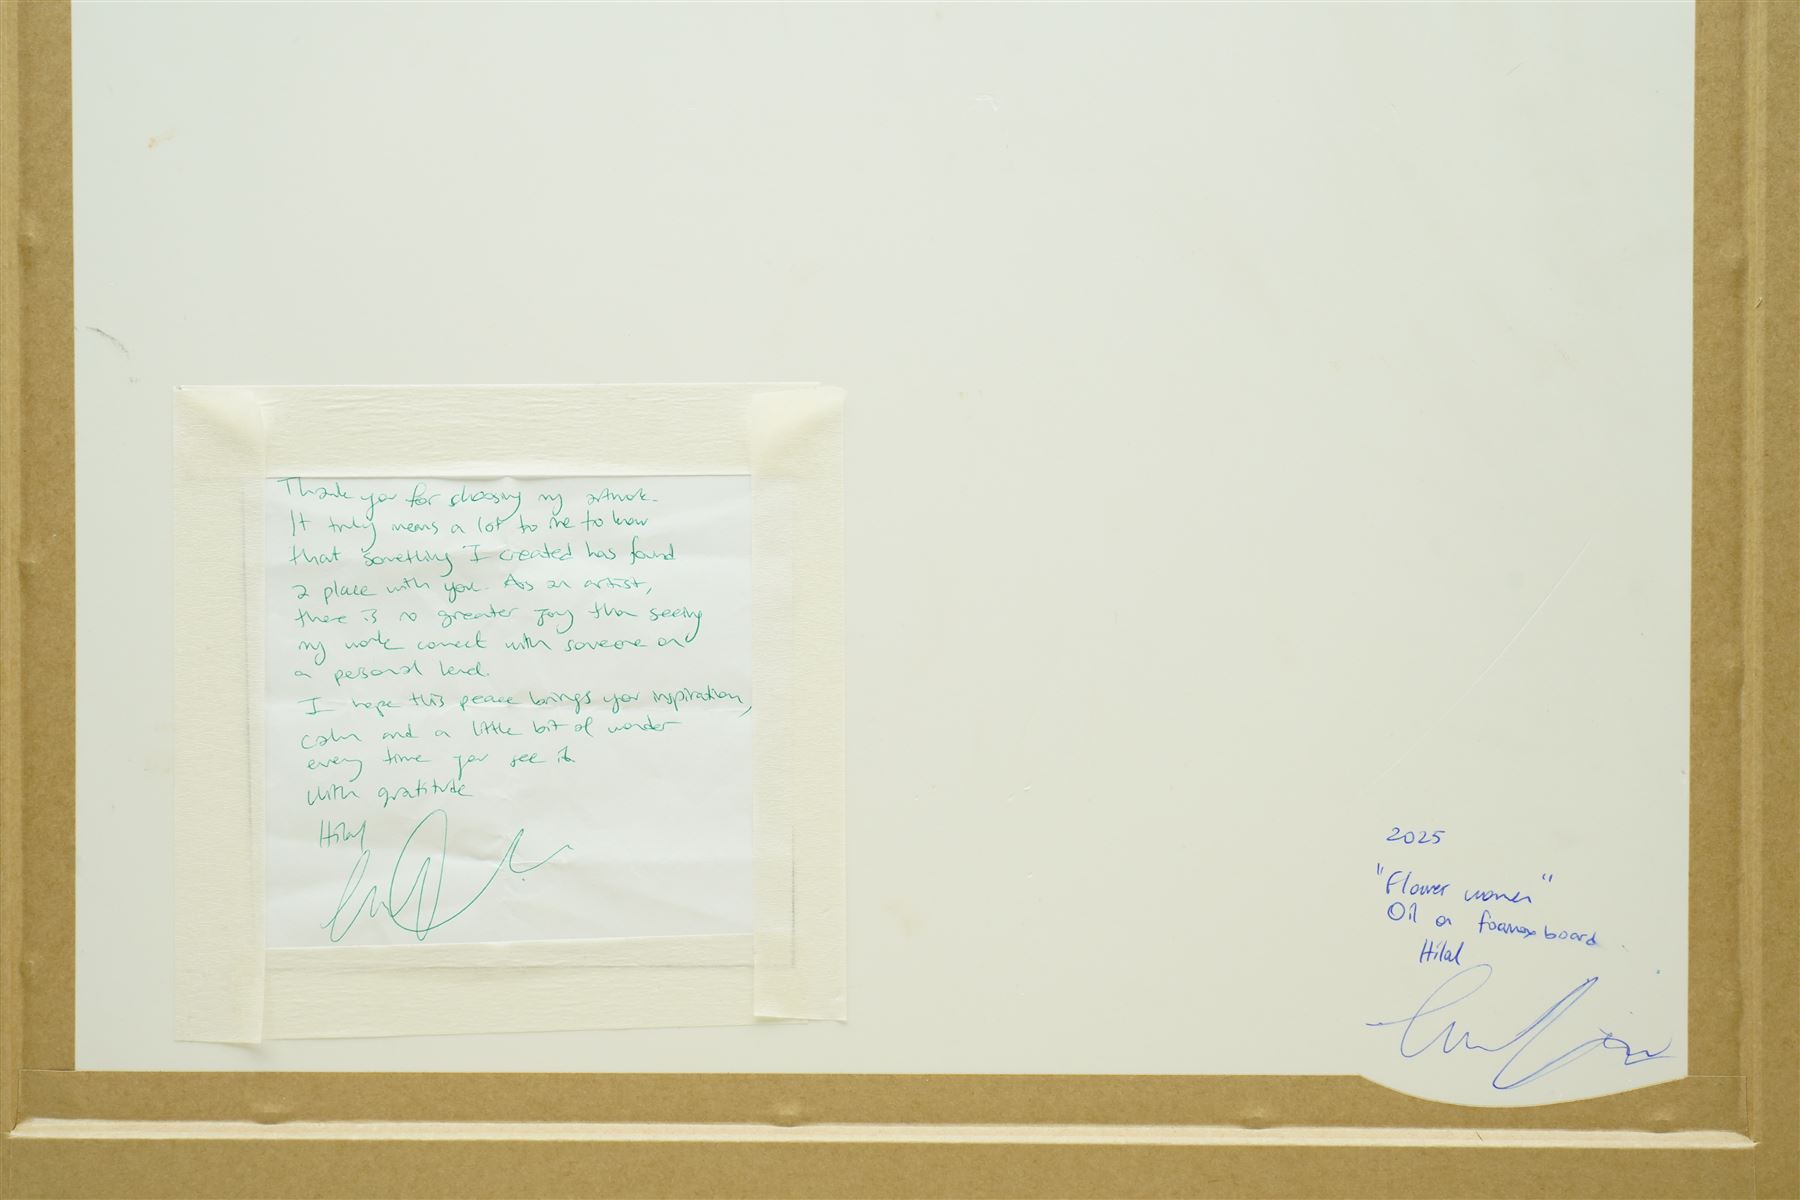 Thank you for choosing my artwork.
It truly means a lot to me to know
that something I created has found
a place with you. As an artist,
there is no greater joy than seeing
my work connect with someone on
a personal level.
I hope this peace brings you inspiration,
calm and a little bit of wonder
every time you see it
With gratitude
Hilal
2025
"Flower women"
Oil on foamex board
Hilal